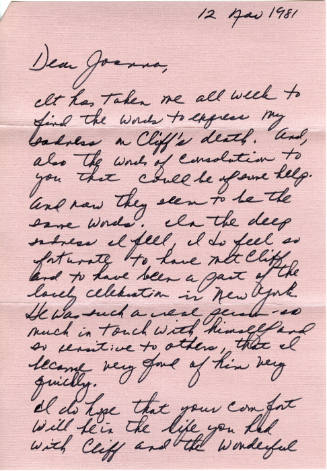 12 Nov 1981
Dear Joanna,
It has taken me all week to
find the words to express my
sadness on Cliff's death. And,
also the words of consolation to
you that could be of some help.
And now they seem to be the
same words. In the deep
sadness I feel, I do feel so
fortunate to have met Cliff
and to have been a part of the
lovely celebration in New York
He was such a real person - so
much in touch with himself and
so sensitive to others, that I
became very fond of him very
quickly.
I do hope that your comfort
will be in the life you had
with Cliff and the wonderful